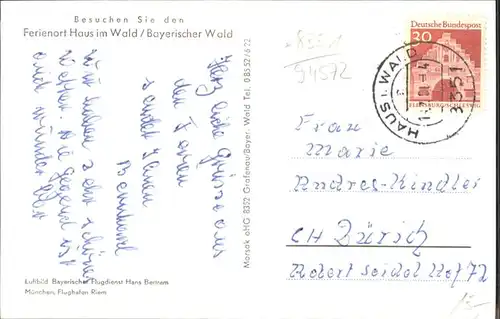 Besuchen Sie den
Ferienort Haus im Wald / Bayerischer Wald
Herzliche Grüsse aus
den Ferien
sendet Ihnen
Wir haben sehr schönes
Wetter. Die Gegend ist
auch wunderbar
Luftbild Bayerischer Flugdienst Hans Bertram
München, Flughafen Riem
Morsak oHG 8352 Grafenau/Bayer. Wald Tel. 08552/622
94572
Deutsche Bundespost
30
FLENSBURG/SCHLESWIG
HAUS I. WALD
8351
Frau
Marie
Andres-Kindler
CH Zürich
Robert Seidel Hof 72